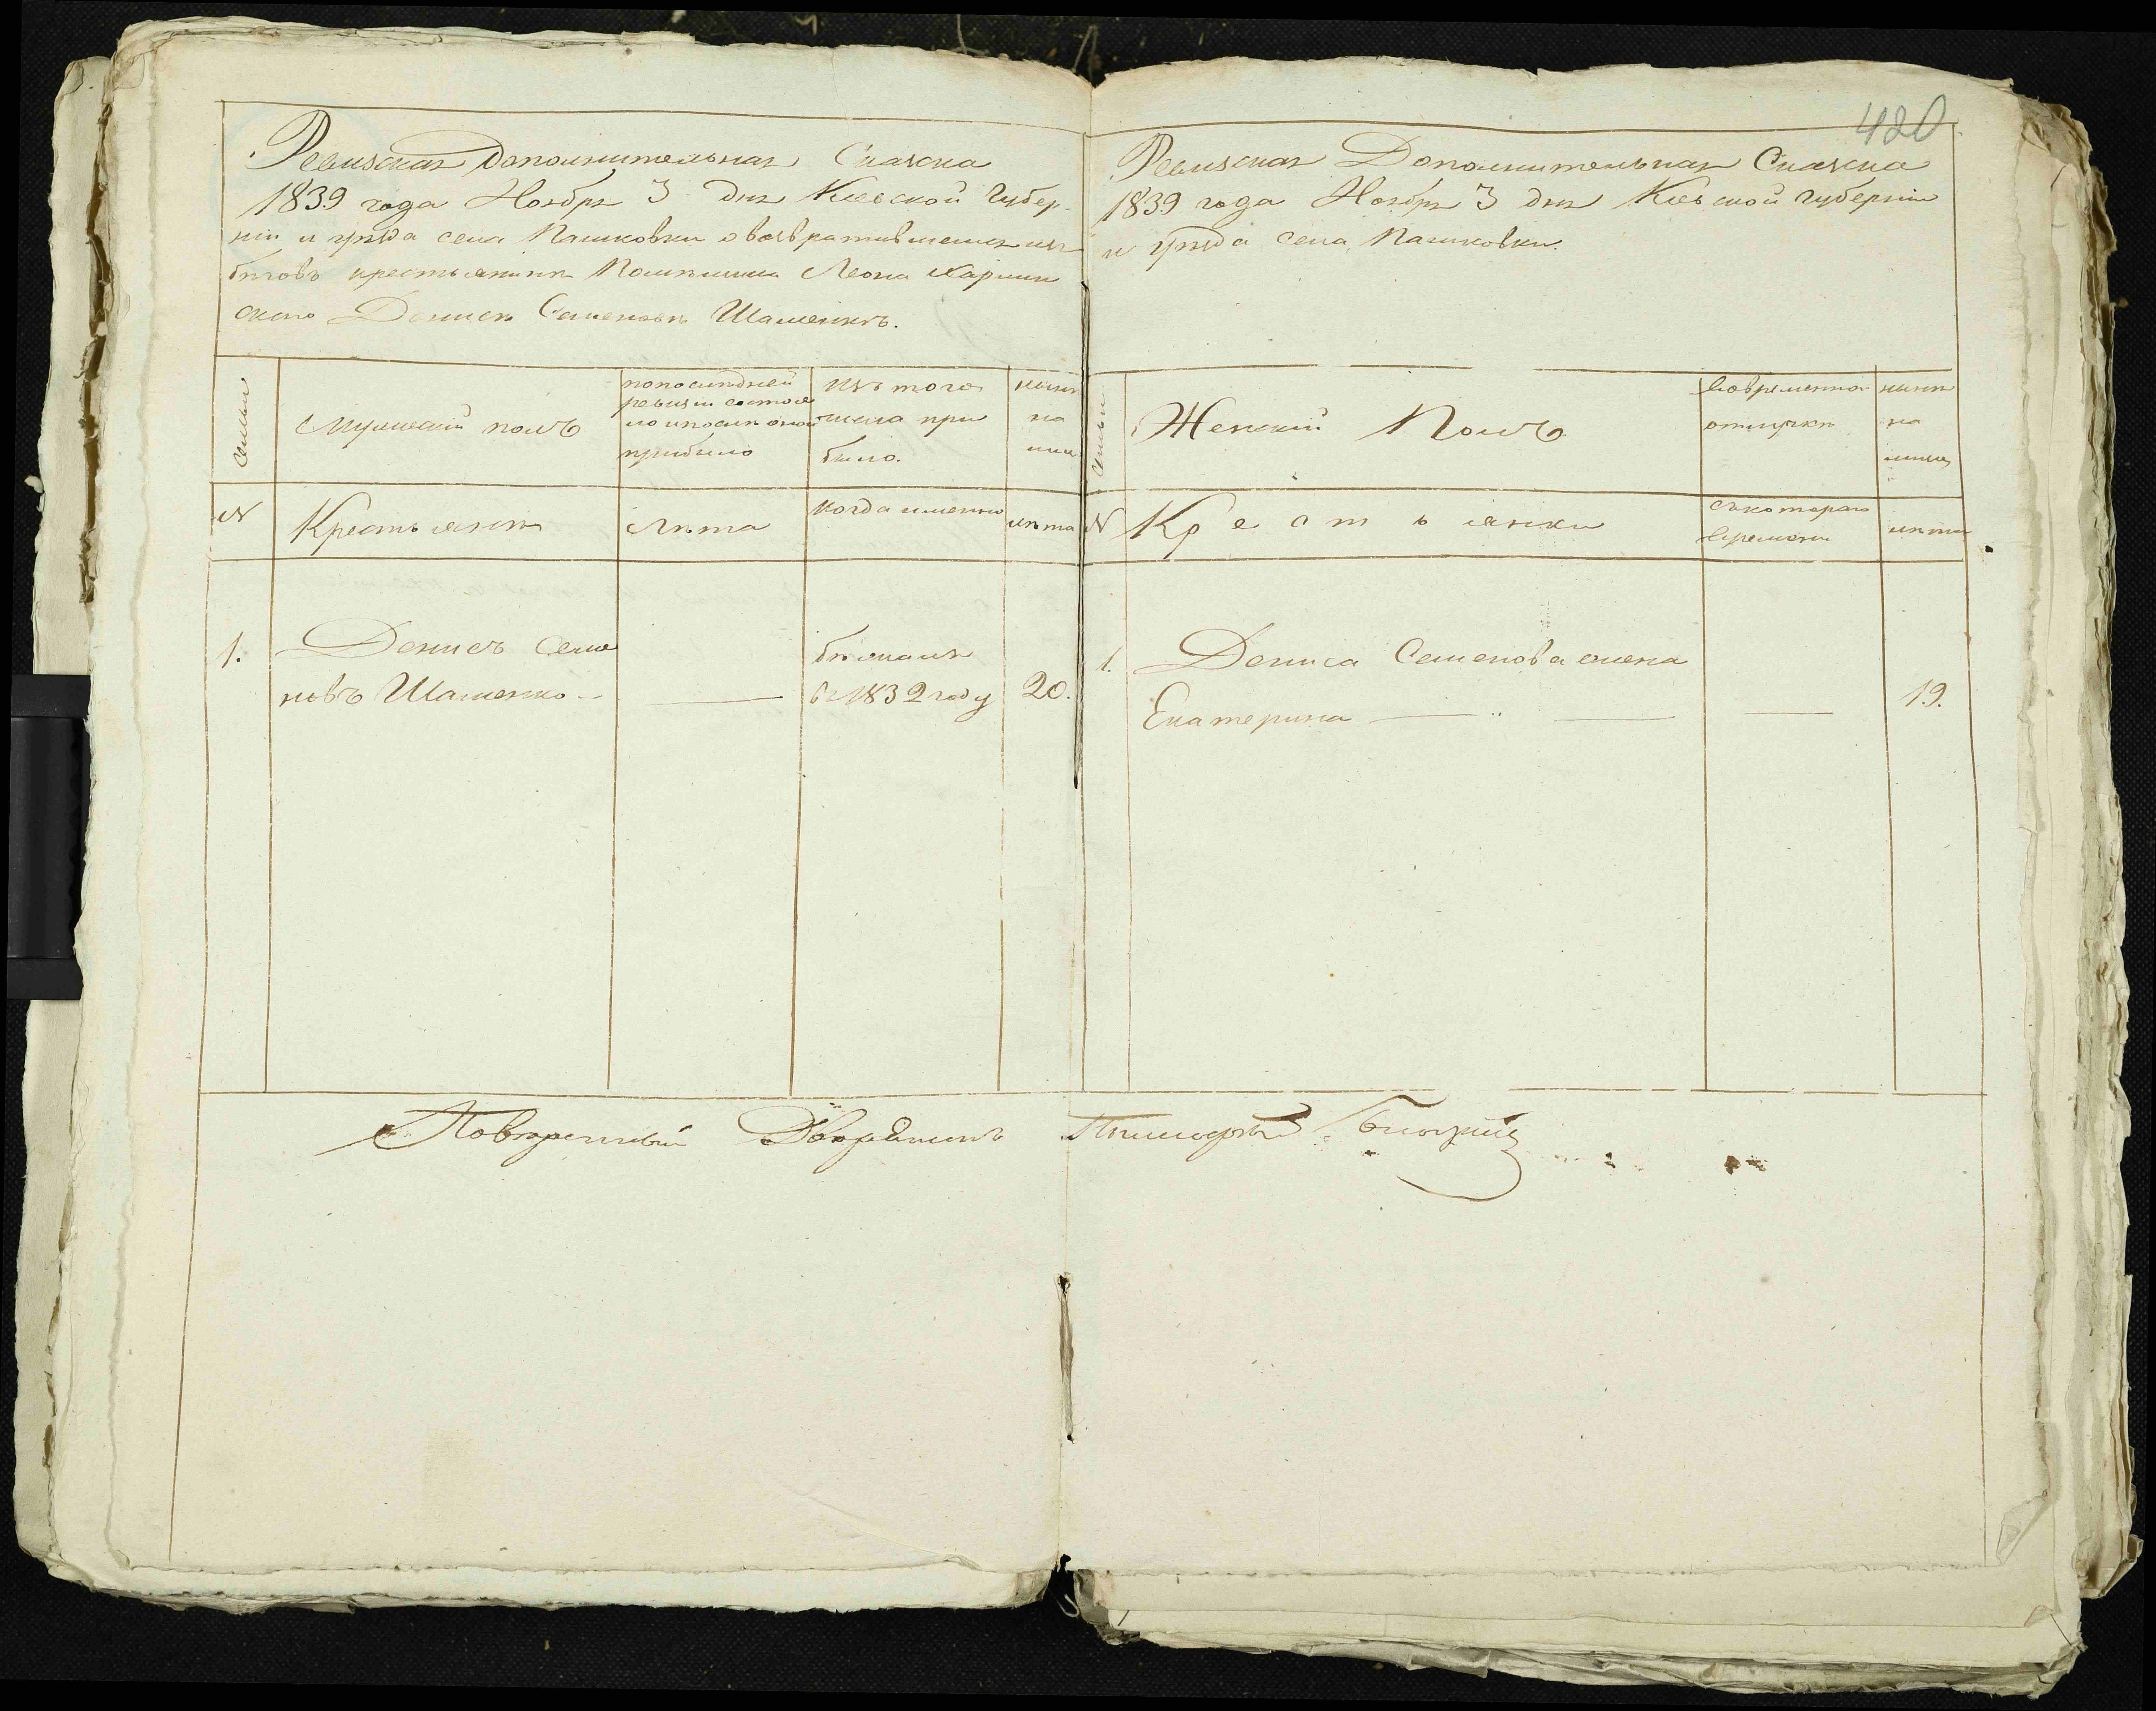 420
Ревизская Дополнительная Сказка
1839 года Ноября 3 дня Киевской Губер-
ніи и уѣзда села Пашковки о возвратившемся изъ
бѣговъ крестьянинѣ Помѣщика Леона
Денисѣ Семеновѣ Шаменкѣ.
Семьи
Мужескій полъ
по последней
ревизіи состоя
ло и после оной
прибыло
Изъ того
числа при
было.
нынѣ
на
лицо
№
Крестьянѣ
Лѣта
когда именно
лѣта
1.
Денисъ Семе
новъ Шаменко
бѣжалъ
въ 1832 году
20.
Ревизская Дополнительная Сказка
1839 года Ноября 3 дня Киевской Губерніи
и уѣзда села Пашковки.
Семьи
Женскій Полъ
Во временной
отлучкѣ
нынѣ
на
лицо
№
Крестьянки
съ котораго
времени
лѣта
1.
Дениса Семенова жена
Екатерина
19.
Повѣренный Дворянинъ